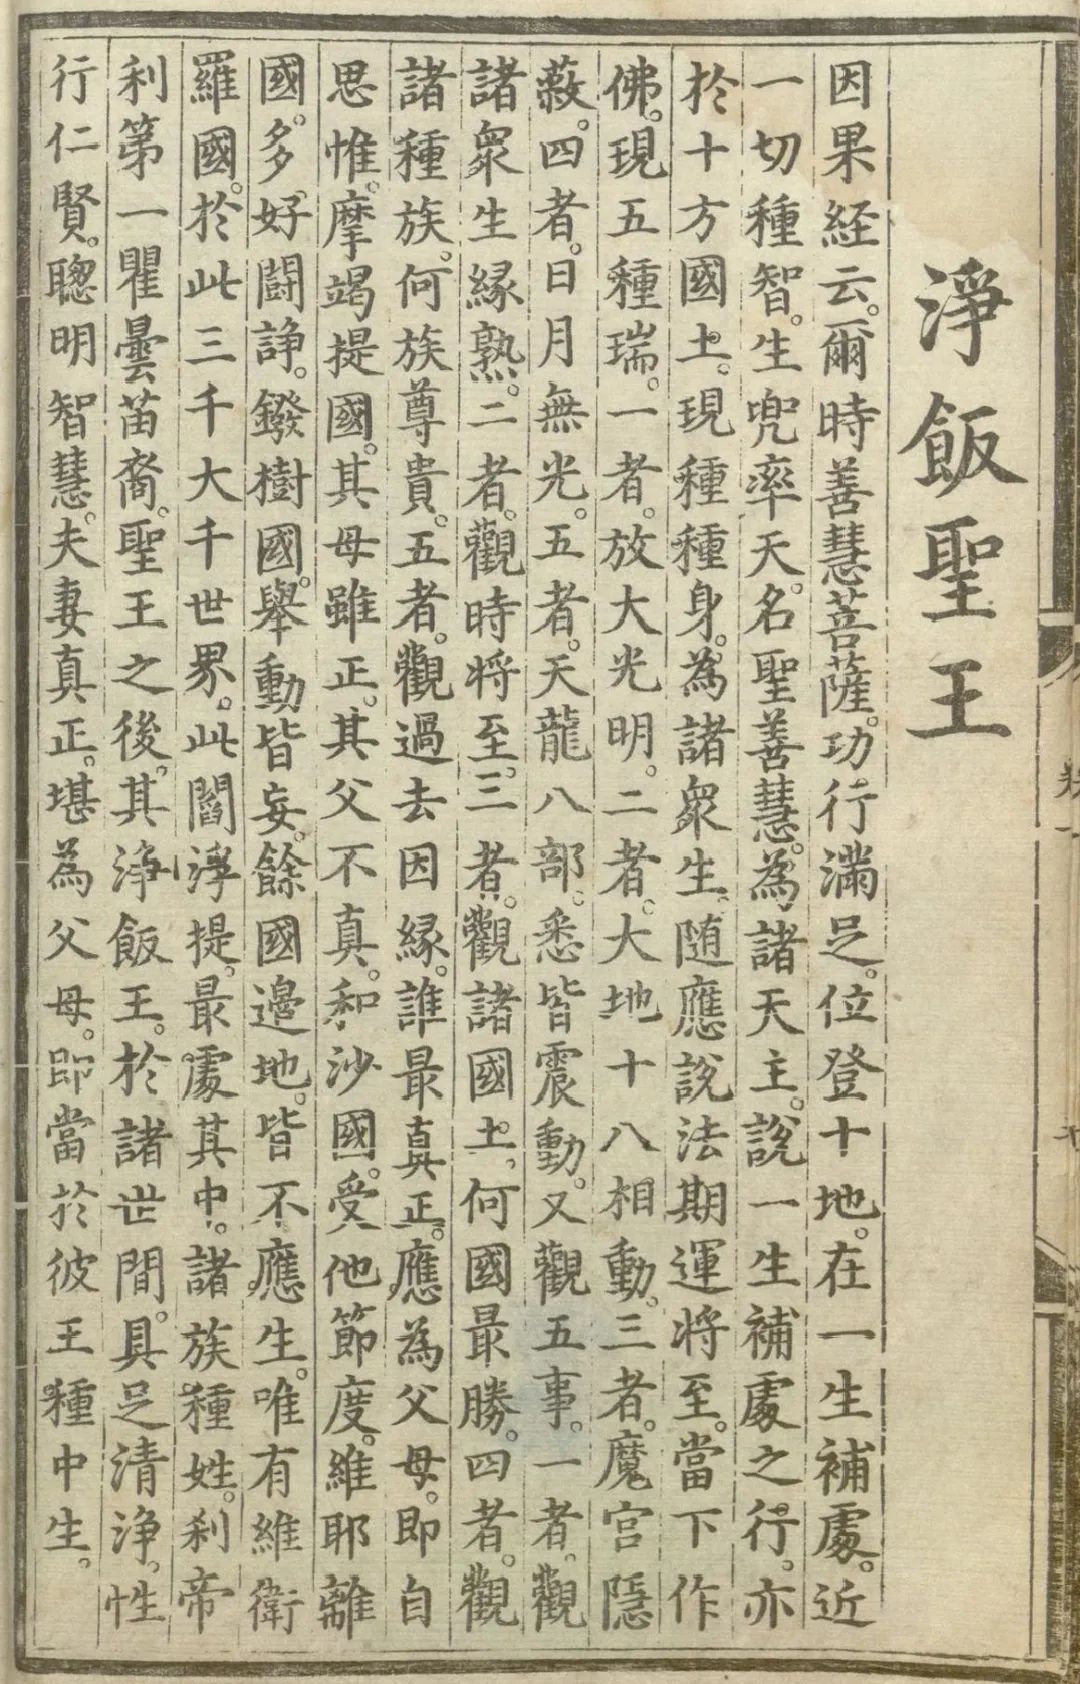 淨飯聖王
因果経云。爾時善慧菩薩。功行滿足。位登十地。在一生補處。近
一切種智。生兜率天。名聖善慧。為諸天主。說一生補處之行。亦
於十方國土。現種種身。為諸衆生。随應說法。期運將至。當下作
佛。現五種瑞。一者。放大光明。二者。大地十八相動。三者。魔宮隱
蔽。四者。日月無光。五者。天龍八部。悉皆震動。又觀五事。一者。觀
諸衆生緣熟。二者。觀時将至。三者。觀諸國土。何國最勝。四者。觀
諸種族。何族尊貴。五者。觀過去因緣。誰最真正。應為父母。即自
思惟。摩竭提國。其母雖正。其父不真。和沙國。受他節度。維耶離
國。多好鬪諍。鏺樹國。舉動皆妄。餘國邊地。皆不應生。唯有維衛
羅國。於此三千大千世界。此閻浮提。最處其中。諸族種姓。刹帝
利第一瞿曇苗裔。聖王之後。其淨飯王。於諸世間。具足清淨。性
行仁賢。聰明智慧。夫妻真正。堪為父母。即當於彼王種中生。